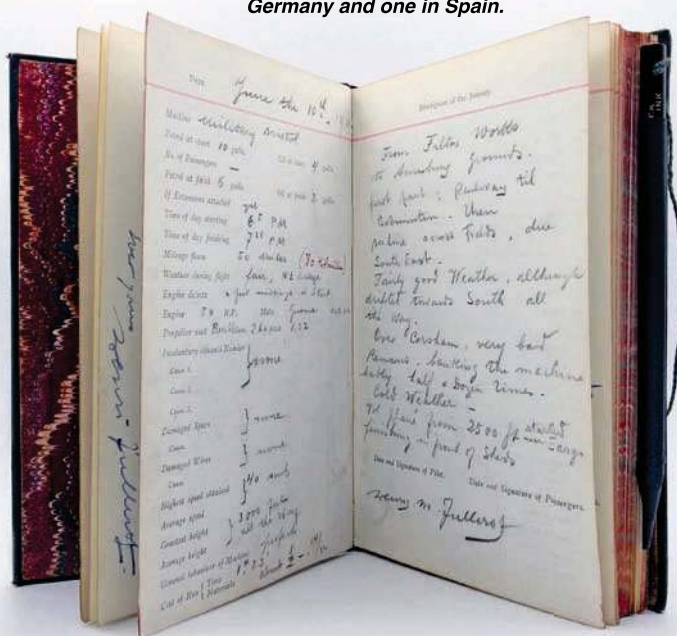 Germany and one in Spain.
Date June the 10th
Machine Military Bristol
Petrol at start 10 galls. Oil at start 4 galls.
No. of Passengers —
Petrol at finish 5 galls. Oil at finish 2 galls.
If Extensions attached yes
Time of day starting 6 P.M.
Time of day finishing 7 P.M.
Mileage flown 50 miles
Weather during flight fair,
Engine defects a few misfirings at start
Engine 50 H.P.
Propeller used
Involuntary descents Number
Cause 1.
none
Cause 2.
Cause 3.
Damaged Spars
none
Cause
Damaged Wires
none
Cause
Highest speed attained
Average speed
40 mls
Constant height
3000 feet
all the way
Average height
General behaviour of Machine perfect
Cost of Run Time
Materials
Henri Jullerot
Description of the Journey
From Filton Works
to Amesbury grounds.
first part: Railway til
then
across fields, due
South East.
Fairly good Weather, although
drifted towards South all
the way.
Over Corsham, very bad
banking the machine
badly half a dozen times.
Cold Weather —
Vol plané from 2500 ft started
finishing in front of Sheds
Date and Signature of Pilot. Date and Signature of Passengers.
Henri M. Jullerot
INK